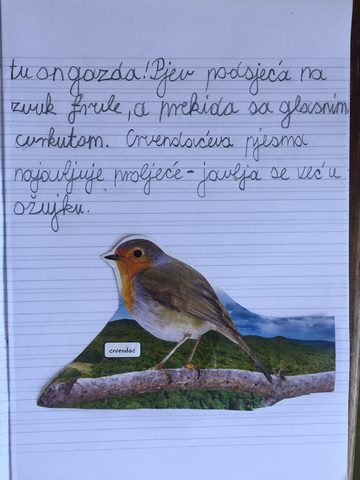 tu on gazda! Pjev podsjeća na
zvuk frule, a prekida sa glasnim
cvrkutom. Crvendaćeva pjesma
najavljuje proljeće - javlja se već u
ožujku.
crvendać